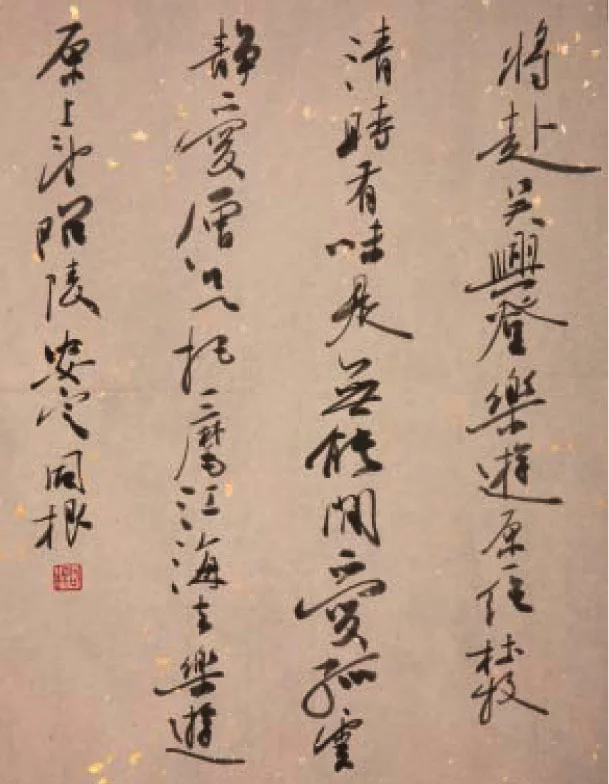 將赴吳興登樂遊原一絕杜牧
清時有味是無能閑愛孤雲
靜愛僧欲把一麾江海去樂遊
原上望昭陵安定同根